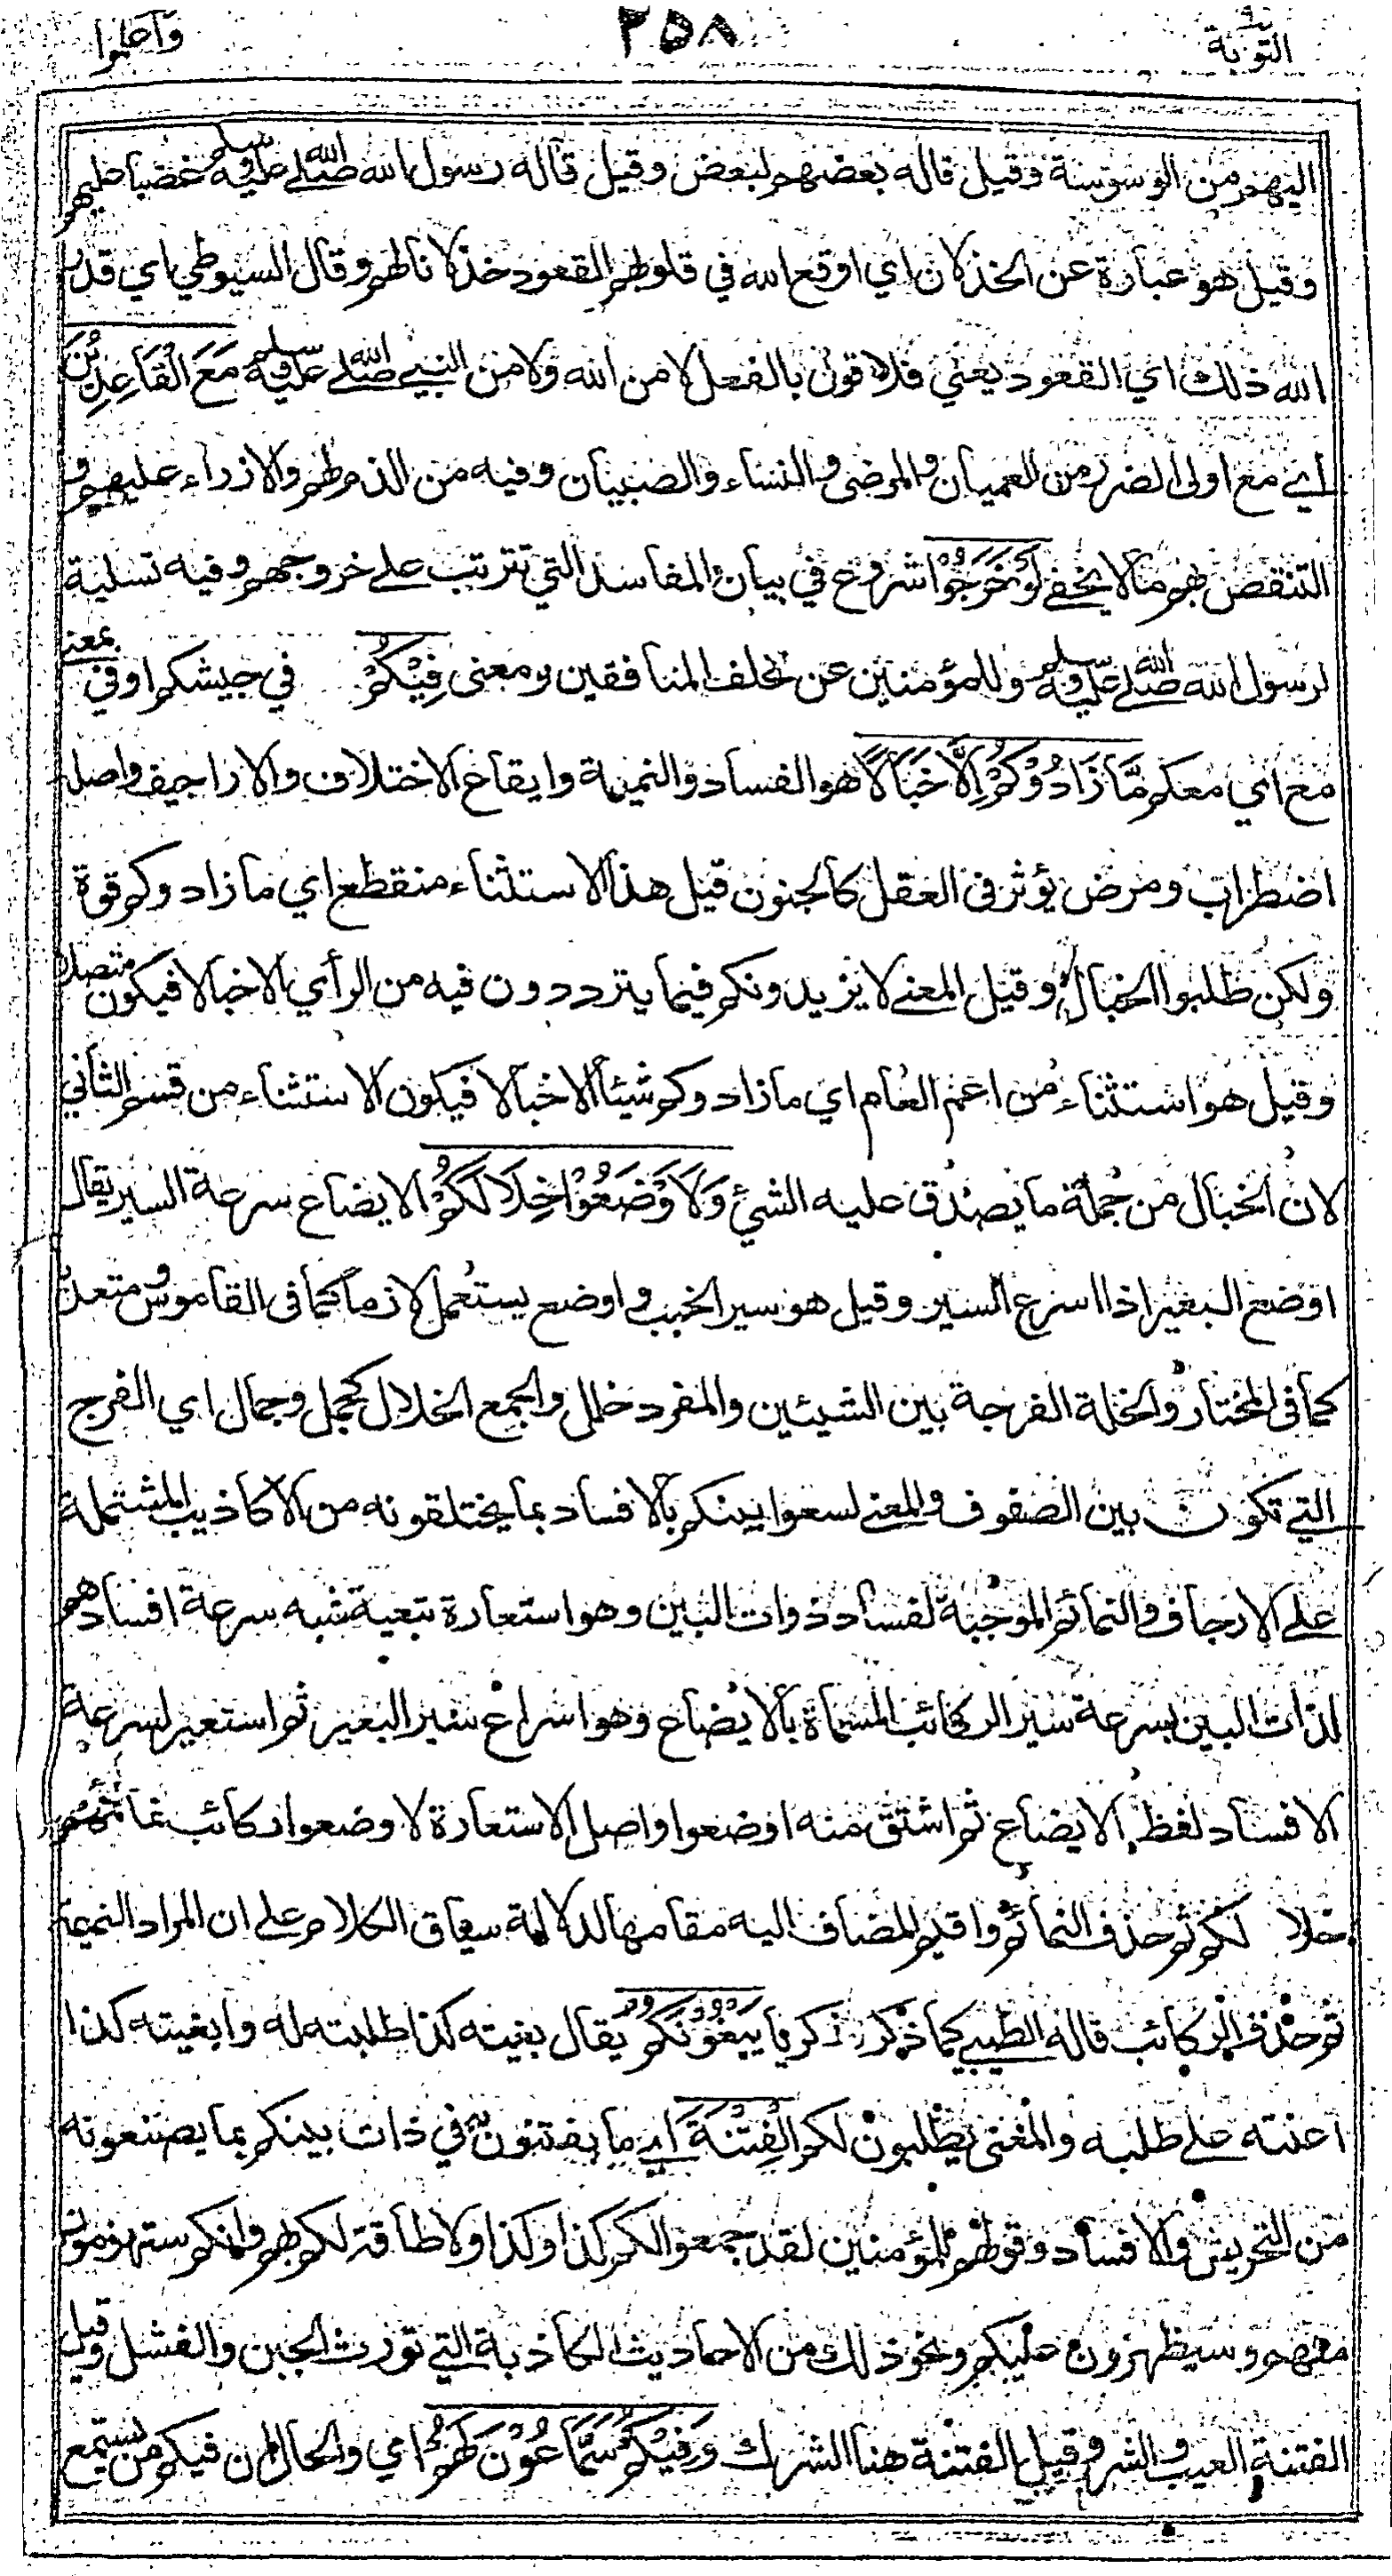 التوبة ٩
٢٥٨
واعلموا
اليهم من الوسوسة وقيل قاله بعضهم لبعض وقيل قاله رسول الله صلى الله عليه وسلم غضبا عليهم
وقيل هو عبارة عن الخذلان اي اوقع الله في قلوبهم القعود خذلانا لهم وقال السيوطي اي قدر
الله ذلك اي القعود يعني فلا قول بالفعل لا من الله ولا من النبي صلى الله عليه وسلم مَعَ الْقَاعِدِيْنَ
اي مع اولى الضرر من العميان والمرضى والنساء والصبيان وفيه من الذم لهم والازراء عليهم و
التنقص بهم مالا يخفى لَوْ خَرَجُوْا شروع في بيان المفاسد التي تترتب على خروجهم وفيه تسلية
لرسول الله صلى الله عليه وسلم وللمؤمنين عن تخلف المنافقين ومعنى فِيْكُمْ في جيشكم او في بمعنى
مع اي معكم مَّا زَادُوْكُمْ اِلَّا خَبَالًا هو الفساد والنميمة وايقاع الاختلاف والاراجيف واصله
اضطراب ومرض يؤثر في العقل كالجنون قيل هذا الاستثناء منقطع اي ما زادوكم قوة
ولكن طلبوا الخبال لكم وقيل المعنى لا يزيدونكم فيما يترددون فيه من الرأي الا خبالا فيكون متصلا
وقيل هو استثناء من اعم العام اي ما زادوكم شيئا الا خبالا فيكون الاستثناء من قسم الثاني
لان الخبال من جملة ما يصدق عليه الشيء وَلَا وْضَعُوْا خِلَالَكُمْ الايضاع سرعة السير يقال
اوضع البعير اذا اسرع السير وقيل هو سير الخبب و اوضع يستعمل لازما كما في القاموس ومتعديا
كما في المختار والخلة الفرجة بين الشيئين والمفرد خلل والجمع الخلال كجمل وجمال اي الفرج
التي تكون بين الصفوف والمعنى لسعوا بينكم بالافساد بما يختلقونه من الاكاذيب المشتملة
على الارجاف والنمائم الموجبة لفساد ذوات البين وهو استعارة تبعية شبه سرعة افسادهم
لذات البين بسرعة سير الركائب المسماة بالايضاع وهو اسراع سير البعير ثم استعير لسرعة
الافساد لفظ الايضاع ثم اشتق منه اوضعوا واصل الاستعارة لا وضعوا ركائب نمائمهم
خلا لكم ثم حذف النمائم واقيم المضاف اليه مقامها لدلالة سياق الكلام على ان المراد النميمة
ثم حذف الركائب قاله الطيبي كما ذكر زكريا يَبْغُوْنَكُمُ يقال بغيته كذا طلبته له وابغيته كذا
اعنته على طلبه والمعنى يطلبون لكم الْفِتْنَةَ اي ما يفتنون به في ذات بينكم بما يصنعونه
من التحريش والافساد وقولهم للمؤمنين لقد جمعوا لكم كذا وكذا ولا طاقة لكم بهم وانكم ستهزمون
منهم وسيظهرون عليكم ونحو ذلك من الاحاديث الكاذبة التي تورث الجبن والفشل وقيل
الفتنة العيب والشر وقيل الفتنة هنا الشرك وَفِيْكُمْ سَمَّاعُوْنَ لَهُمْ اي والحال ان فيكم من يستمع